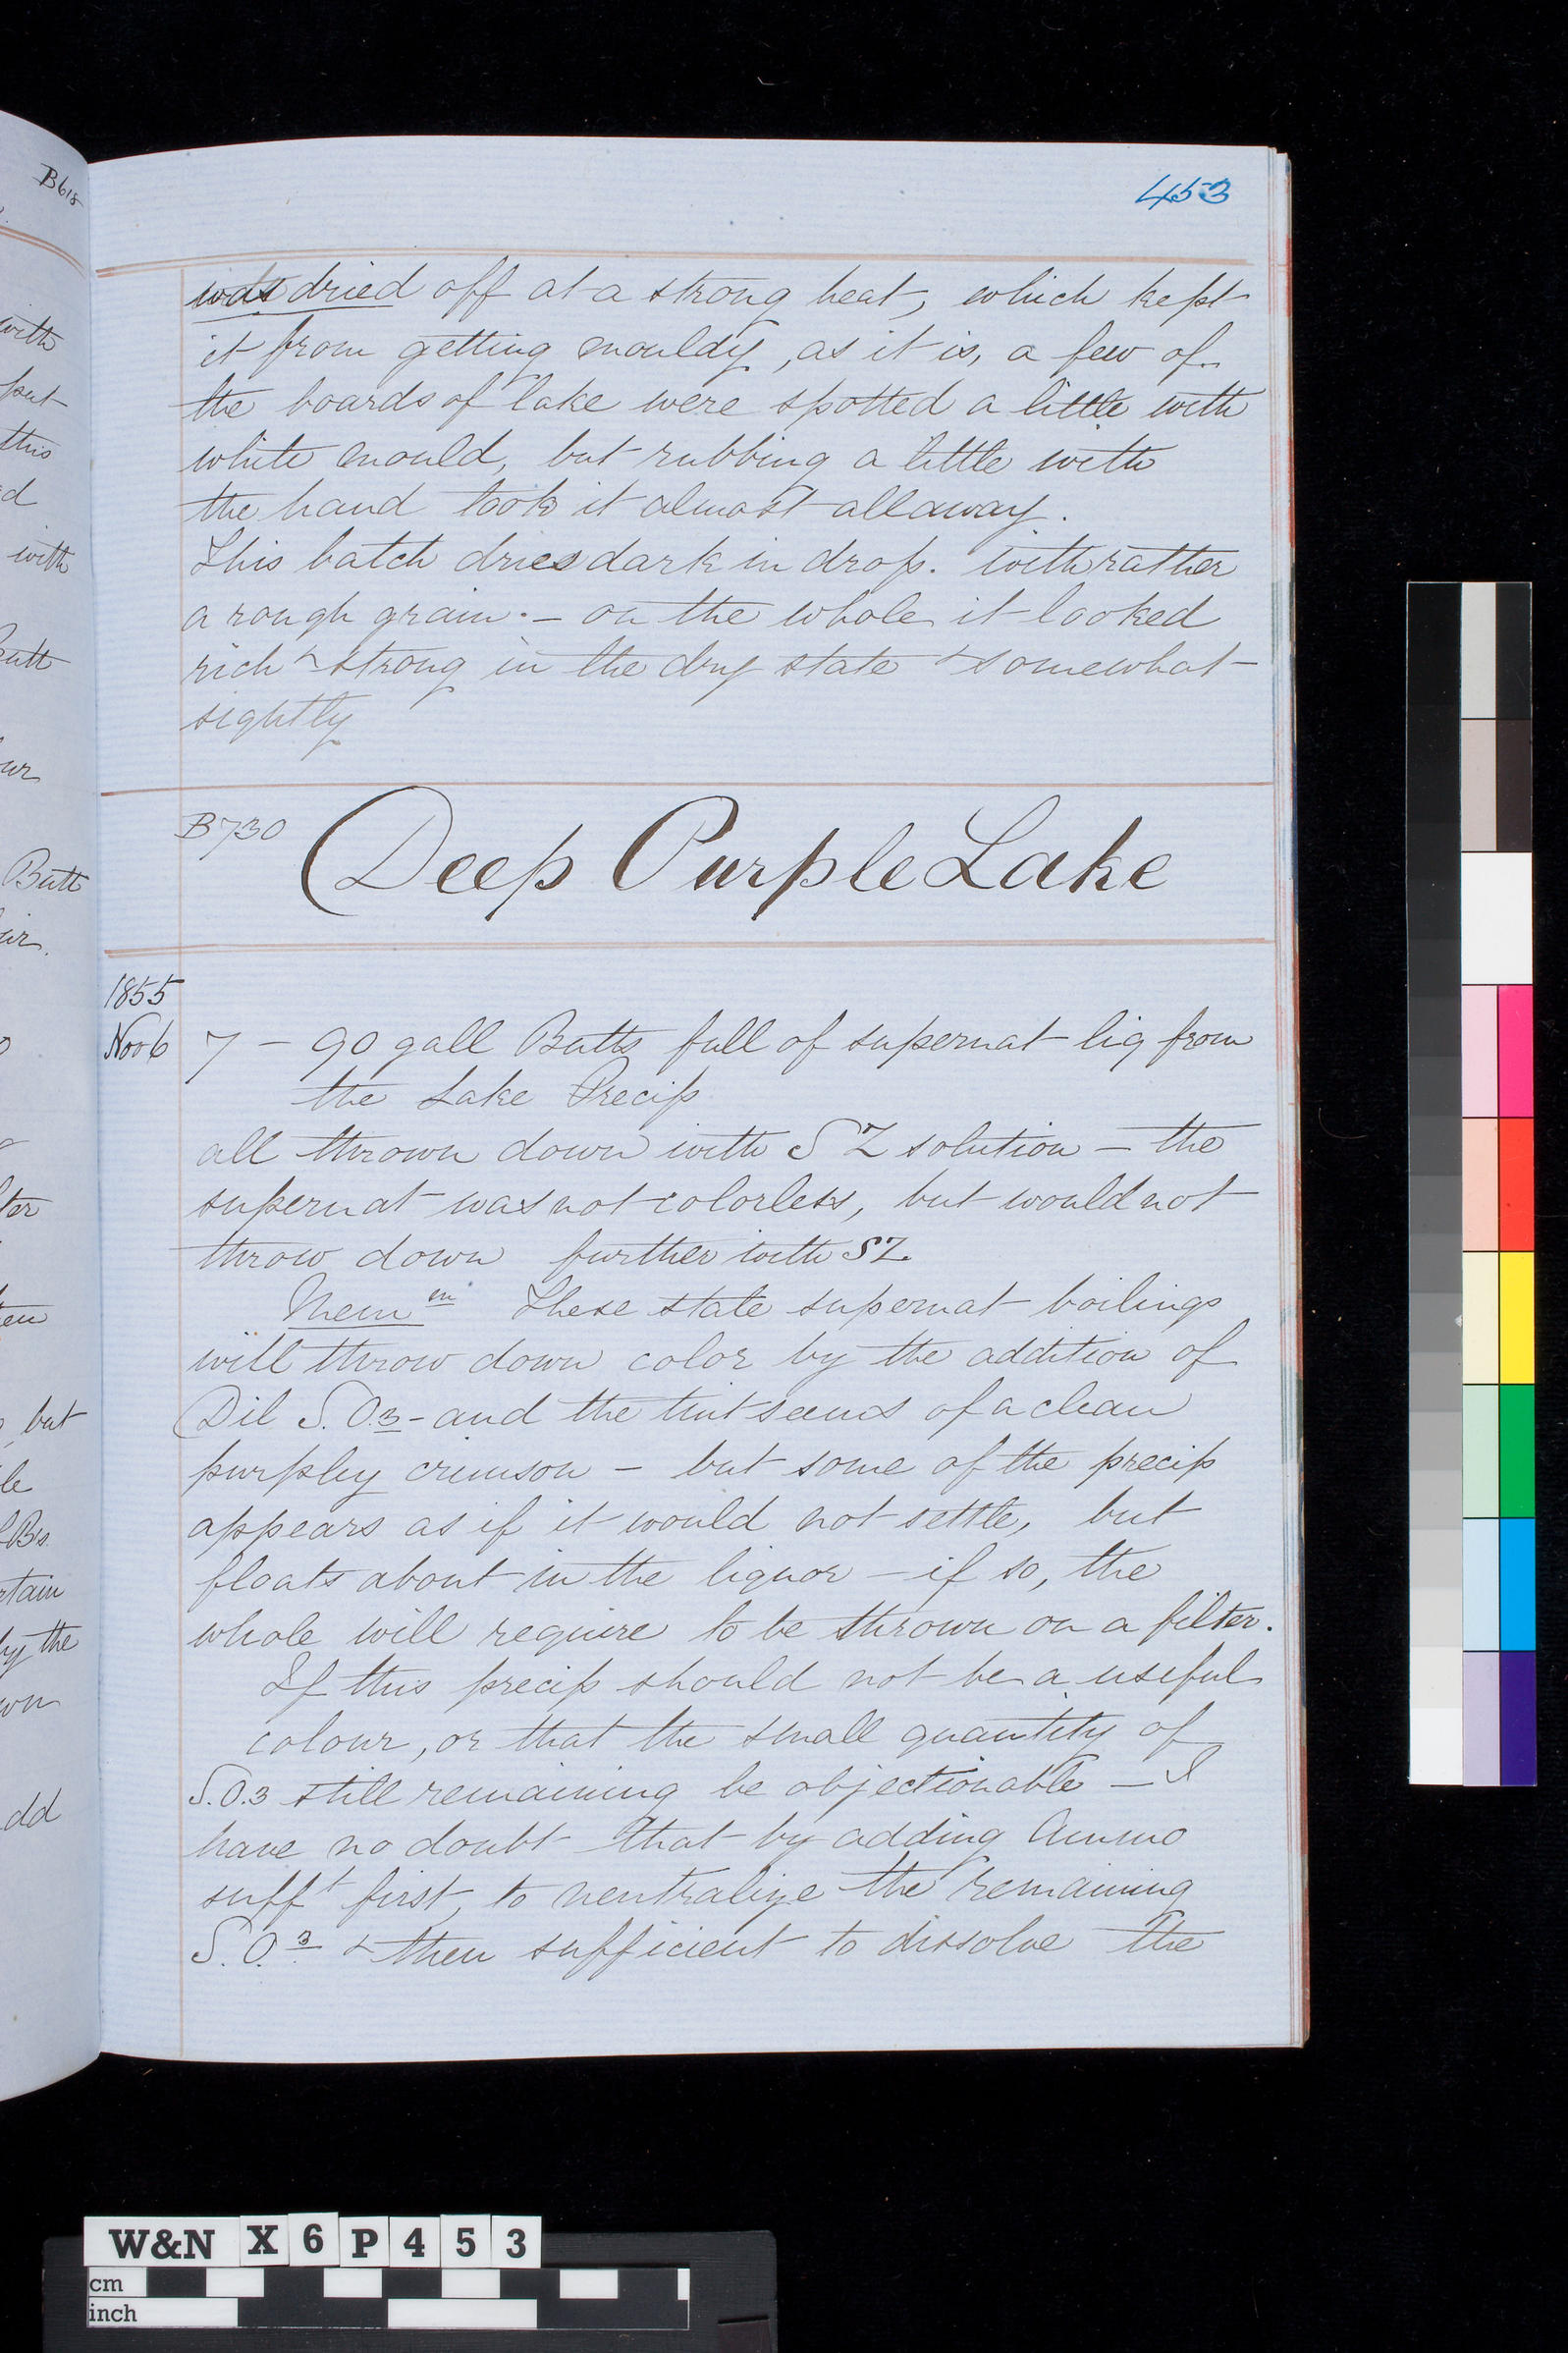 453
was dried off at a strong heat, which kept
it from getting mouldy, as it is, a few of
the boards of lake were spotted a little with
white mould, but rubbing a little with
the hand took it almost all away.
This batch dries dark in drop. with rather
a rough grain. — on the whole it looked
rich & strong in the dry state & somewhat
sightly
B730 Deep Purple Lake
1855
Nov 6 7 — 90 gall Butts full of supernat liq from
the Lake Precip
all thrown down with SZ solution — the
supernat was not colorless, but would not
throw down further with SZ
Mem m These state supernat boilings
will throw down color by the addition of
Dil S.O.3 - and the tint seems of a clean
purpley crimson — but some of the precip
appears as if it would not settle, but
floats about in the liquor — if so, the
whole will require to be thrown on a filter.
If this precip should not be a useful
colour, or that the small quantity of
S.O.3 still remaining be objectionable — I
have no doubt that by adding Ammo
sufft first, to neutralize the remaining
S.O.3 & then sufficient to dissolve the
B618
with
put
this
d
with
Butt
our
Butt
air.
ter
but
le
Bs.
rtain
by the
own
dd
W&N X6P453
cm
inch